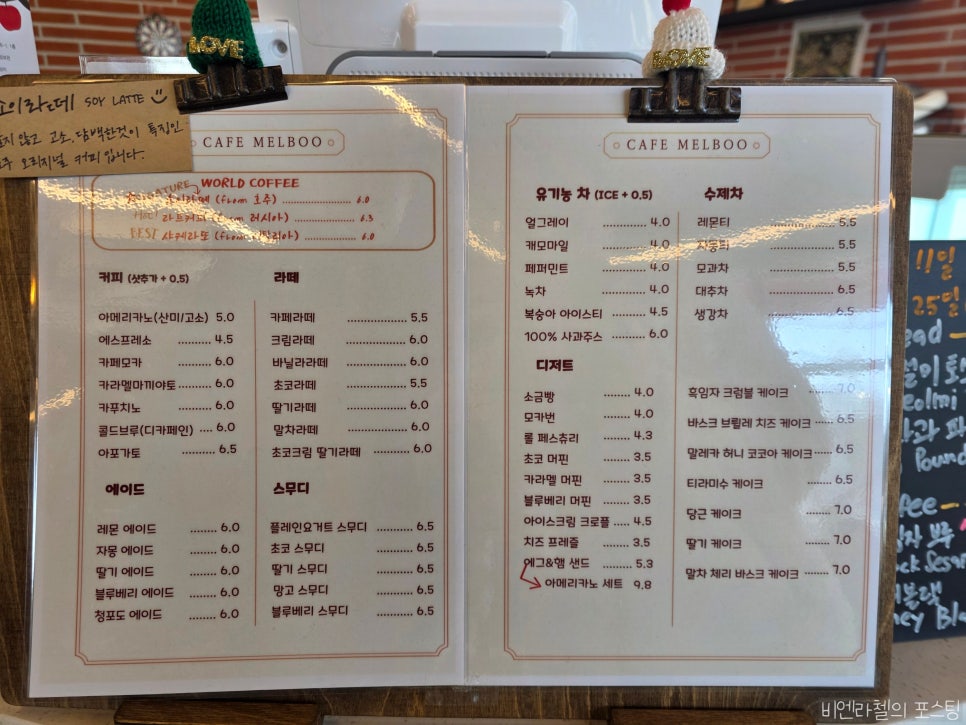 LOVE
LOVE
SOY LATTE
않고 고소, 담백한것이 특징인
오리지널 커피 입니다.
CAFE MELBOO
WORLD COFFEE
(from 호주) 6.0
라프커피 (from 러시아) 6.3
BEST 샤케라또 6.0
커피 (샷추가 + 0.5)
아메리카노(산미/고소) 5.0
에스프레소 4.5
카페모카 6.0
카라멜마끼야또 6.0
카푸치노 6.0
콜드브루(디카페인) 6.0
아포가토 6.5
라떼
카페라떼 5.5
크림라떼 6.0
바닐라라떼 6.0
초코라떼 5.5
딸기라떼 6.0
말차라떼 6.0
초코크림 딸기라떼 6.0
에이드
레몬 에이드 6.0
자몽 에이드 6.0
딸기 에이드 6.0
블루베리 에이드 6.0
청포도 에이드 6.0
스무디
플레인요거트 스무디 6.5
초코 스무디 6.5
딸기 스무디 6.5
망고 스무디 6.5
블루베리 스무디 6.5
CAFE MELBOO
유기농 차 (ICE + 0.5)
얼그레이 4.0
캐모마일 4.0
페퍼민트 4.0
녹차 4.0
복숭아 아이스티 4.5
100% 사과주스 6.0
수제차
레몬티 5.5
자몽티 5.5
모과차 5.5
대추차 6.5
생강차 6.5
디저트
소금빵 4.0
모카번 4.0
롤 페스츄리 4.3
초코 머핀 3.5
카라멜 머핀 3.5
블루베리 머핀 3.5
아이스크림 크로플 4.5
치즈 프레즐 3.5
에그&햄 샌드 5.3
아메리카노 세트 9.8
흑임자 크럼블 케이크 7.0
바스크 브륄레 치즈 케이크 6.5
말레카 허니 코코아 케이크 6.5
티라미수 케이크 6.5
당근 케이크 7.0
딸기 케이크 7.0
말차 체리 바스크 케이크 7.0
11일
25일
비엔나첼의 포스팅